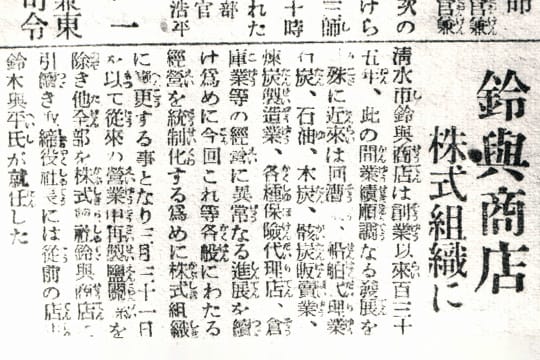 鈴與商店
株式組織に
清水市鈴與商店は創業以來百三十
五年、此の間業績順調なる發展を
殊に近來は回漕、船舶代理業
石炭、石油、木炭、骸炭販賣業、
煉炭製造業、各種保險代理店、倉
庫業等の經營に異常なる進展を續
け爲めに今回これ等各般にわたる
經營を統制化する爲めに株式組織
に變更する事となり三月三十一日
を以て從來の營業中再製鹽關係を
除き他全部を株式會社鈴與商店に
引繼き取締役社長には從前の店主
鈴木與平氏が就任した